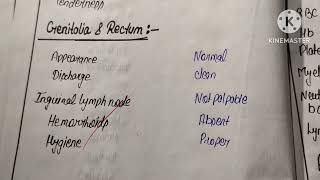 Tenderness
Genitalia & Rectum:-
Appearance Normal
Discharge clean
Inguinal lymph node Not palpable
Hemorrhoids Absent
Hygiene Proper
RBC
Hb
Plate
Myel
Neut
KINEMASTER